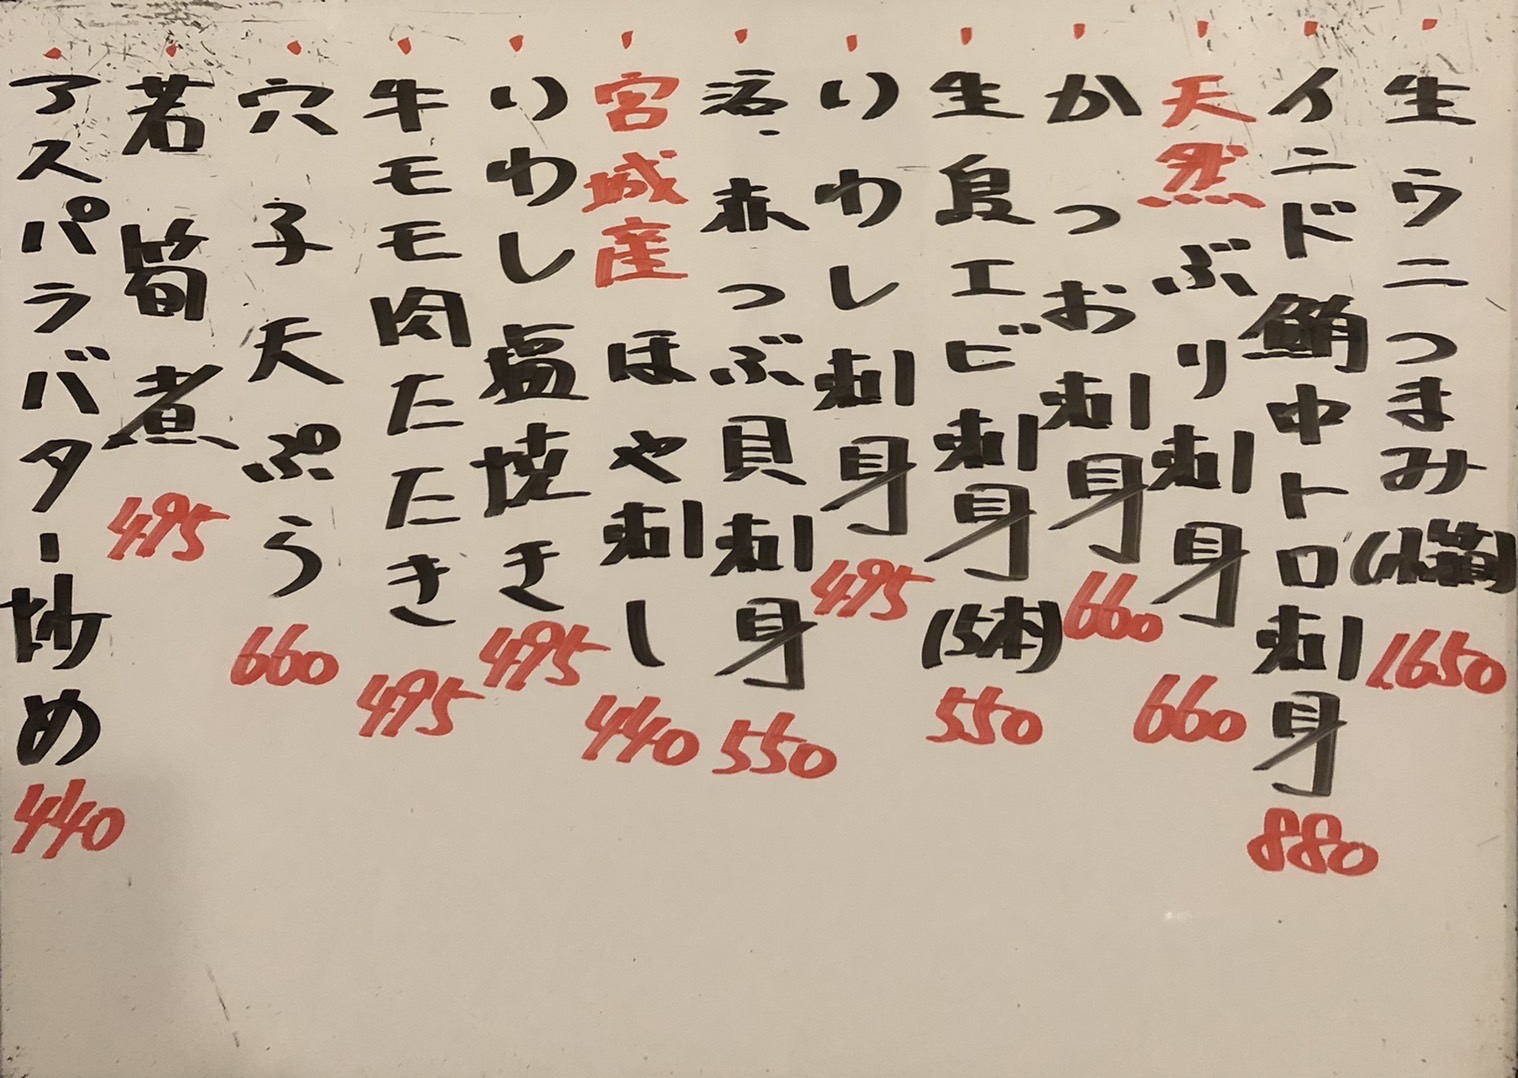 生ウニつまみ(小箱) 1,650
インド鮪中トロ刺身 880
天然ぶり刺身 660
かつお刺身 660
生エビ刺身(5本) 550
いわし刺身 495
活・赤つぶ貝刺身 550
宮城産ほや刺し 440
いわし塩焼き 495
牛モモ肉たたき 495
穴子天ぷら 660
若筍煮 495
アスパラバター炒め 440